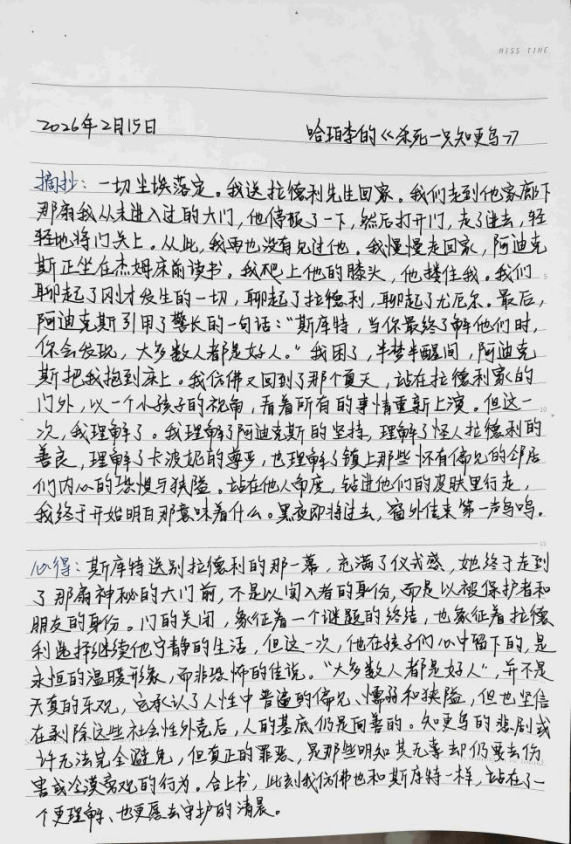 MISS TIME
2026年2月15日 哈珀李的《杀死一只知更鸟》
摘抄：一切尘埃落定。我送拉德利先生回家。我们走到他家廊下
那扇我从未进入过的大门，他停顿了一下，然后打开门，走了进去，轻
轻地将门关上。从此，我再也没有见过他。我慢慢走回家，阿迪克
斯正坐在杰姆床前读书。我爬上他的膝头，他搂住我。我们
聊起了刚才发生的一切，聊起了拉德利，聊起了尤厄尔。最后，
阿迪克斯引用了警长的一句话：“斯库特，当你最终了解他们时，
你会发现，大多数人都是好人。”我困了，半梦半醒间，阿迪克
斯把我抱到床上。我仿佛又回到了那个夏天，站在拉德利家的
门外，以一个小孩子的视角，看着所有的事情重新上演。但这一
次，我理解了。我理解了阿迪克斯的坚持，理解了怪人拉德利的
善良，理解了卡波妮的尊严，也理解了镇上那些怀有偏见的邻居
们内心的恐惧与狭隘。站在他人角度，钻进他们的皮肤里行走，
我终于开始明白那意味着什么。黑夜即将过去，窗外传来第一声鸟鸣。
心得：斯库特送别拉德利的那一幕，充满了仪式感，她终于走到
了那扇神秘的大门前，不是以闯入者的身份，而是以被保护者和
朋友的身份。门的关闭，象征着一个谜题的终结，也象征着拉德
利选择继续他宁静的生活，但这一次，他在孩子们心中留下的，是
永恒的温暖形象，而非恐怖的传说。“大多数人都是好人”，并不是
天真的乐观，它承认了人性中普遍的偏见、懦弱和狭隘，但也坚信
在剥除这些社会性外壳后，人的基底仍是向善的。知更鸟的悲剧或
许无法完全避免，但真正的罪恶，是那些明知其无辜却仍要去伤
害或冷漠旁观的行为。合上书，此刻我仿佛也和斯库特一样，站在了一
个更理解、也更愿去守护的清晨。